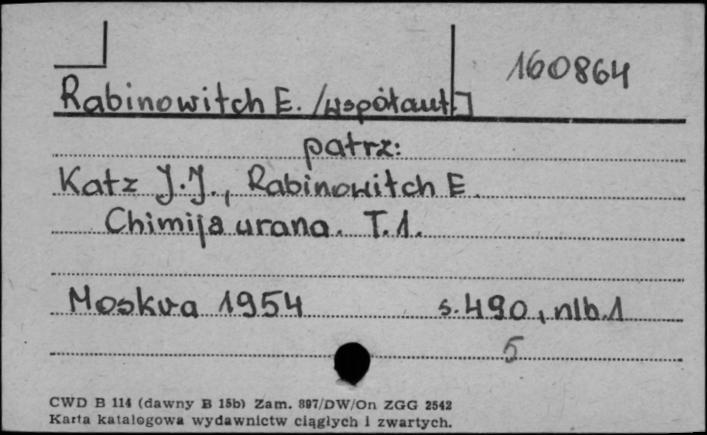 160864
Rabinowitch E. /współaut.]
patrz:
Katz J.J., Rabinowitch E.
Chimija urana. T.1.
Moskva 1954 s.490, nlb.1
5
CWD B 114 (dawny B 15b) Zam. 897/DW/On ZGG 2542
Karta katalogowa wydawnictw ciągłych i zwartych.